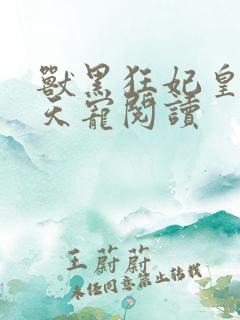 獸黑狂妃皇
天寵閱讀
王蔚蔚
未经同意禁止转载